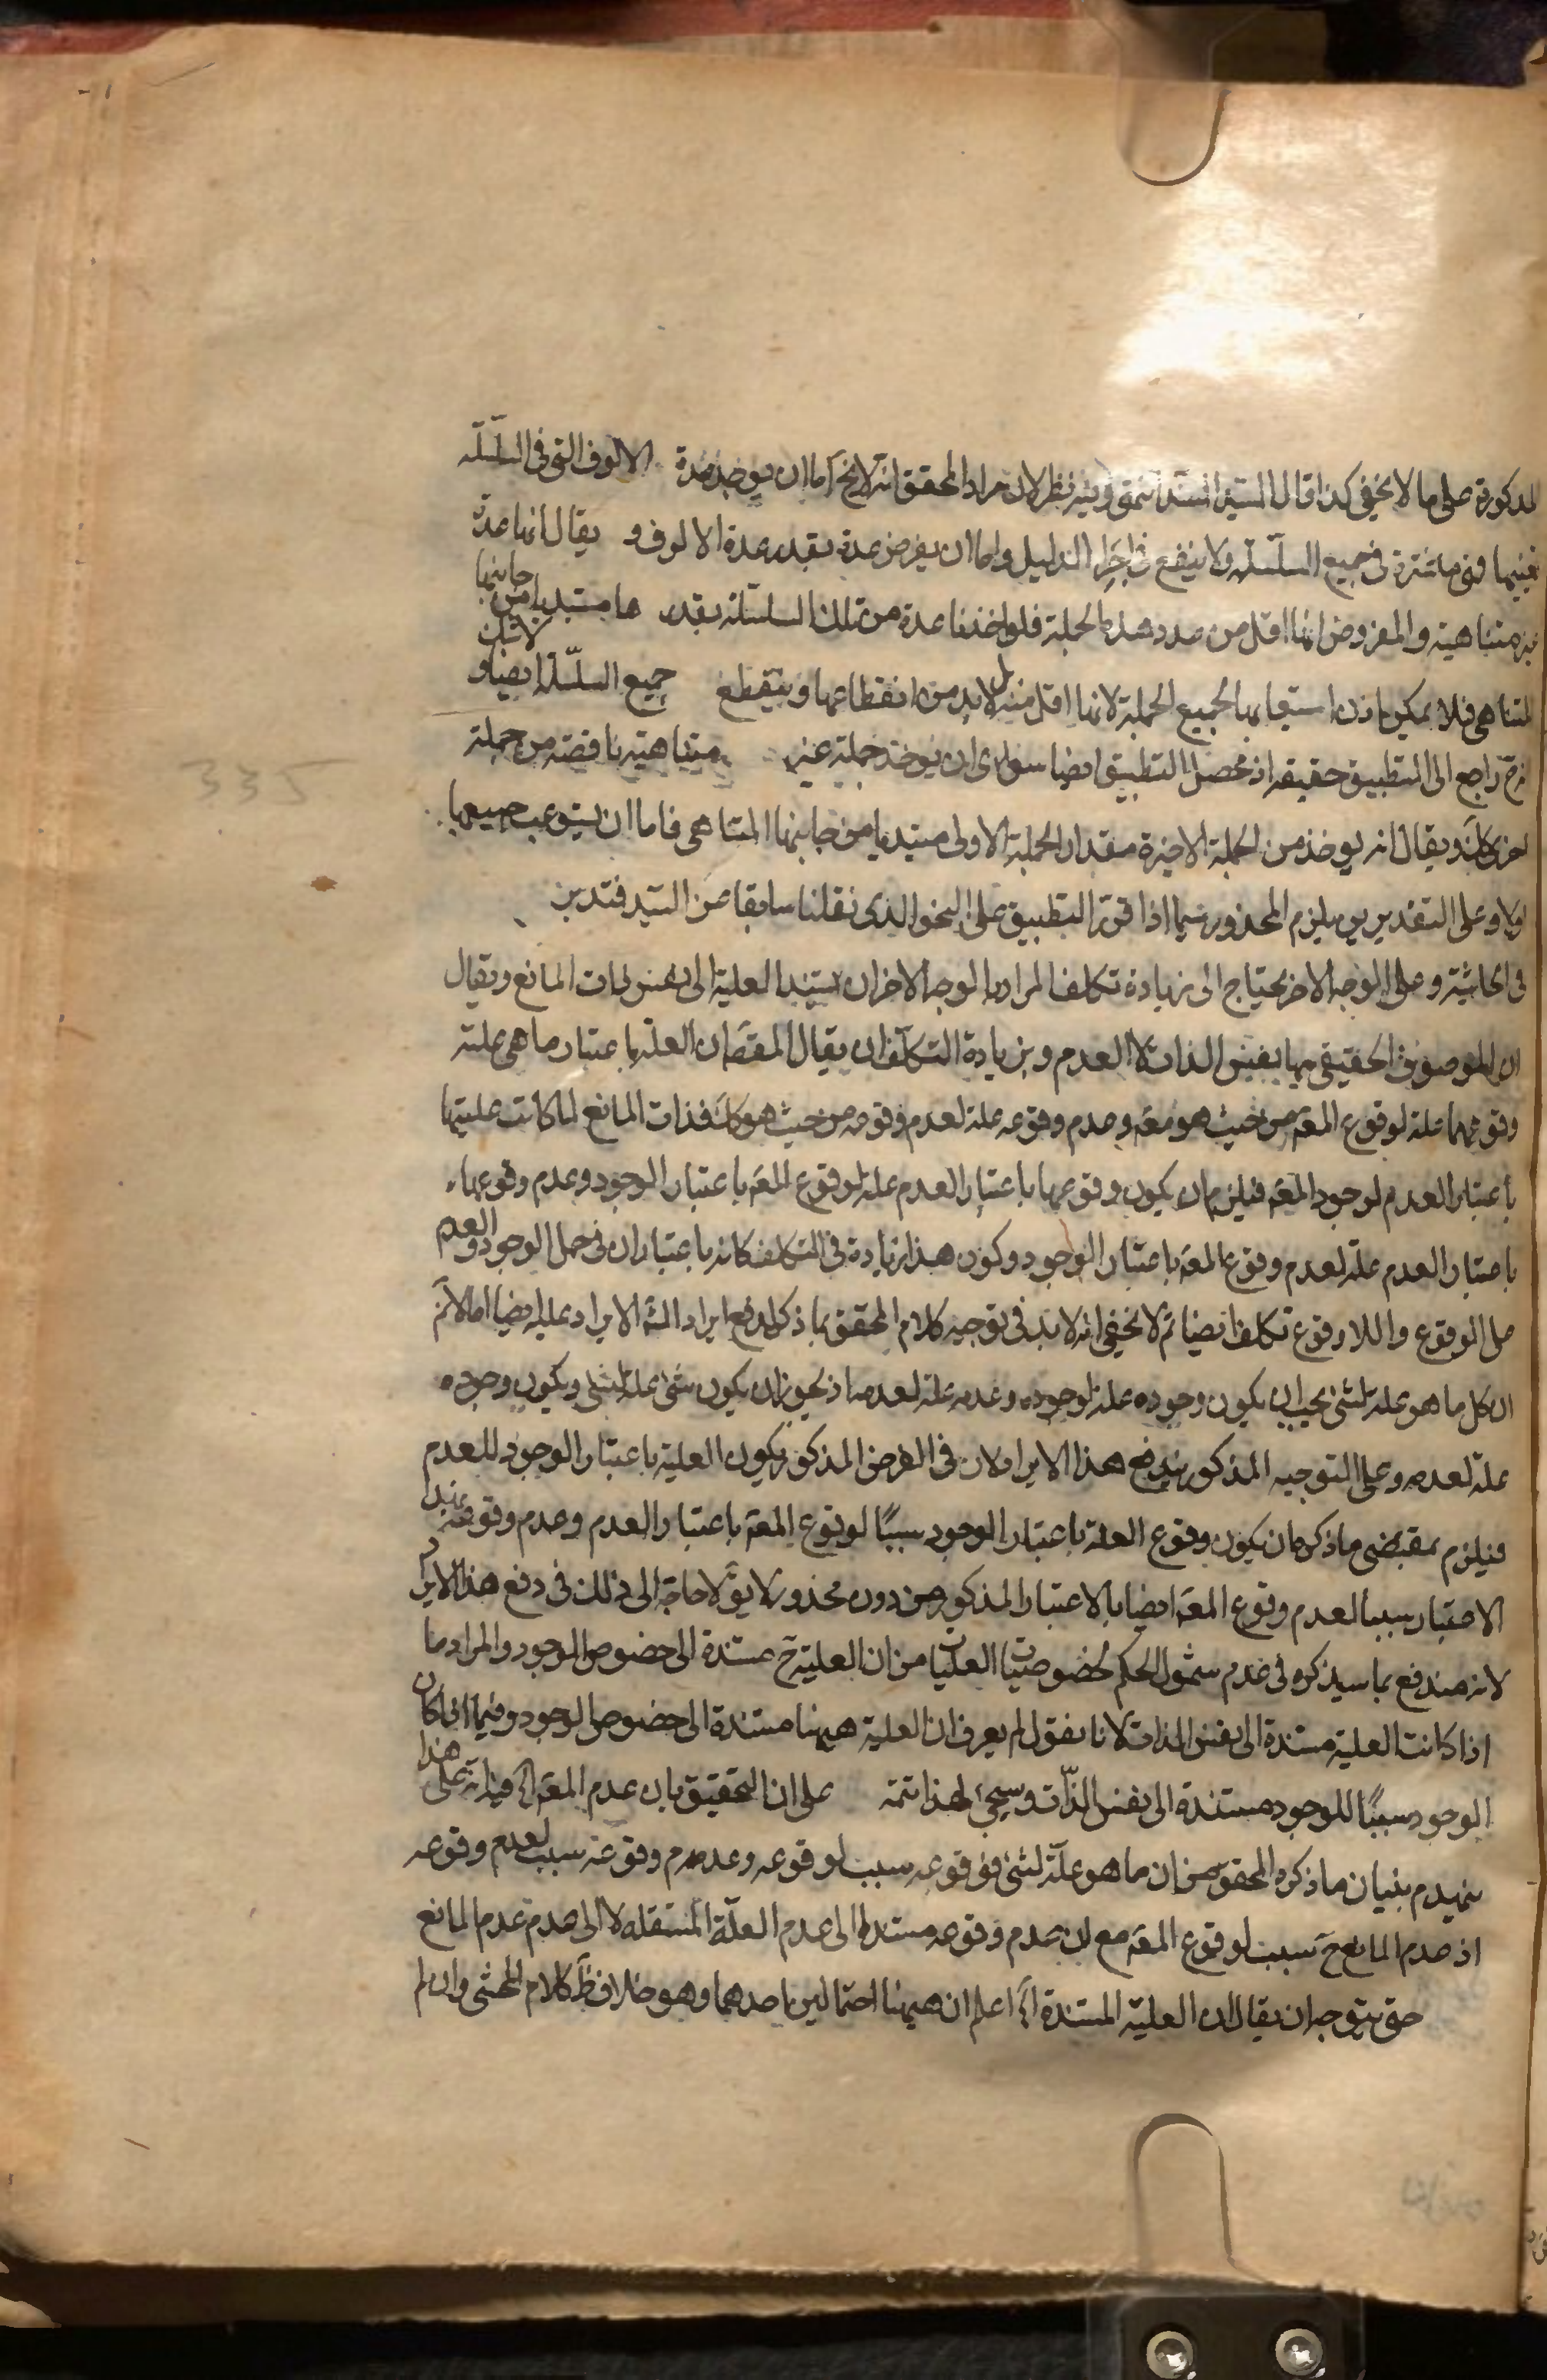 المذكورة على ما لا يخفى كذا قال السيد السند فيه نظر لان مراد المحقق انه لا يخ اما ان يوخذ عدة الالوف التى فى السلسلة
بعينها فهى ما شرة فى جميع السلسلة ولا ينفع فى اجراء الدليل واما ان يفرض عدة بقدر عدة الالوف و يقال انها عدة
غير متناهية والمفروض انها اقل من عدد هذه الجملة فلو اخذنا عدة من تلك السلسلة بقدر ها مبتديا من جانبها
المتناهى فلا يمكن اذن استيعابها لجميع الجملة لانها اقل منه بل لابد من انقطاعها وينقطع جميع السلسلة ايضا ولا شك
انه ح راجع الى التطبيق حقيقه اذ محصل التطبيق ايضا سوى ان يوخذ جملة غير متناهية ناقصة من جملة
اخرى كك ويقال انه يوخذ من الجملة الاخيرة مقدار الجملة الاولى مبتديا من جانبها المتناهى فاما ان يستوعب جميعها
اولا وعلى التقديرين يلزم المحذور سيما اذا قرر التطبيق على النحو الذى نقلنا سابقا عن السيد فتدبر
فى الحاشية وعلى الوجه الاخر يحتاج الى زيادة تكلف المراد بالوجه الاخر ان يستند العلية الى نفس ذات المانع ويقال
ان الموصوف الحقيقى بها نفس الذات لا العدم وبزيادة التكلف ان يقال المقصَ ان العلة باعتبار ما هى علة
وقوعها علة لوقوع المعَ من حيث هو معَ وعدم وقوعه علة لعدم وقوعه من حيث هو كك فذات المانع لما كانت عليتها
باعتبار العدم لوجود المعَ فيلزم ان يكون وقوعها باعتبار العدم علة لوقوع المعَ باعتبار الوجود وعدم وقوعها
باعتبار العدم علة لعدم وقوع المعَ باعتبار الوجود وكون هذا زيادة فى التكلف كانه باعتبار ان فى حمل الوجود والعدم
على الوقوع واللا وقوع تكلفا ايضا ثم لا يخفى انه لابد فى توجيه كلام المحقق بما ذكر لدفع ايراد المش الايراد عليه ايضا اما لانم
ان كل ما هو علة لشئ يجب ان يكون وجوده علة لوجوده وعدمه علة لعدمه اذ يجوز ان يكون شئ علة لشئ ويكون وجوده
علة لعدمه وعلى التوجيه المذكور يندفع هذا الايراد لان فى الفرض المذكور يكون العلية باعتبار الوجود للعدم
فيلزم بمقتضى ما ذكره ان يكون وقوع العلة باعتبار الوجود سببًا لوقوع المعَ باعتبار العدم وعدم وقوعه بهذا
الاعتبار سببا لعدم وقوع المعَ ايضا بالاعتبار المذكور من دون محذور لا يقَ لا حاجة الى ذلك فى دفع هذا الايراد
لانه مندفع بما سيذكره فى عدم شمول الحكم لخصوصيات العليات من ان العلية ح مستندة الى خصوص الوجود والمراد ما
اذا كانت العلية مستندة الى نفس الذات لانا نقول لم يعرف ان العلية ههنا مستندة الى خصوص الوجود وفيما اذا كان
الوجود سببًا للوجود مستندة الى نفس الذات وسيجئ لهذا تتمة على ان التحقيق بان عدم المعَ الخ فيه انه على هذا
ينهدم بنيان ما ذكره المحقق من ان ما هو علة لشئ فوقوعه سبب لوقوعه وعدم وقوعه سبب لعدم وقوعه
اذ عدم المانع ح سبب لوقوع المعَ مع ان عدم وقوعه مستند الى عدم العلة المستقله لا الى عدم عدم المانع
حتى يتوجه ان يقال ان العلية المستندة الخ اعلم ان ههنا احتمالين احدهما وهو خلاف ظَ كلام المحشى وان لم